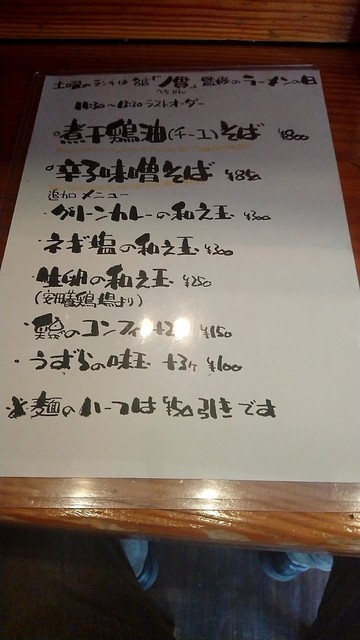 土曜のランチは 監修のラーメンの日
11:30～13:30 ラストオーダー
。煮干鶏油(チーユ)そば ¥800
。辛味噌そば ¥850
追加メニュー
・グリーンカレーの和え玉 ¥300
・ネギ塩の和え玉 ¥300
・生卵の和え玉 ¥250
のコンフィ ¥150
・うずらの味玉 +3ヶ ¥100
※麺のハーフは ¥50引きです